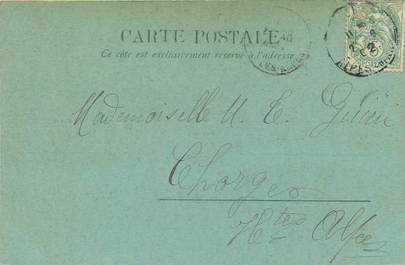 CARTE POSTALE
Ce côté est exclusivement réservé à l'adresse
Mademoiselle M. E.
Chorges
Htes Alpes